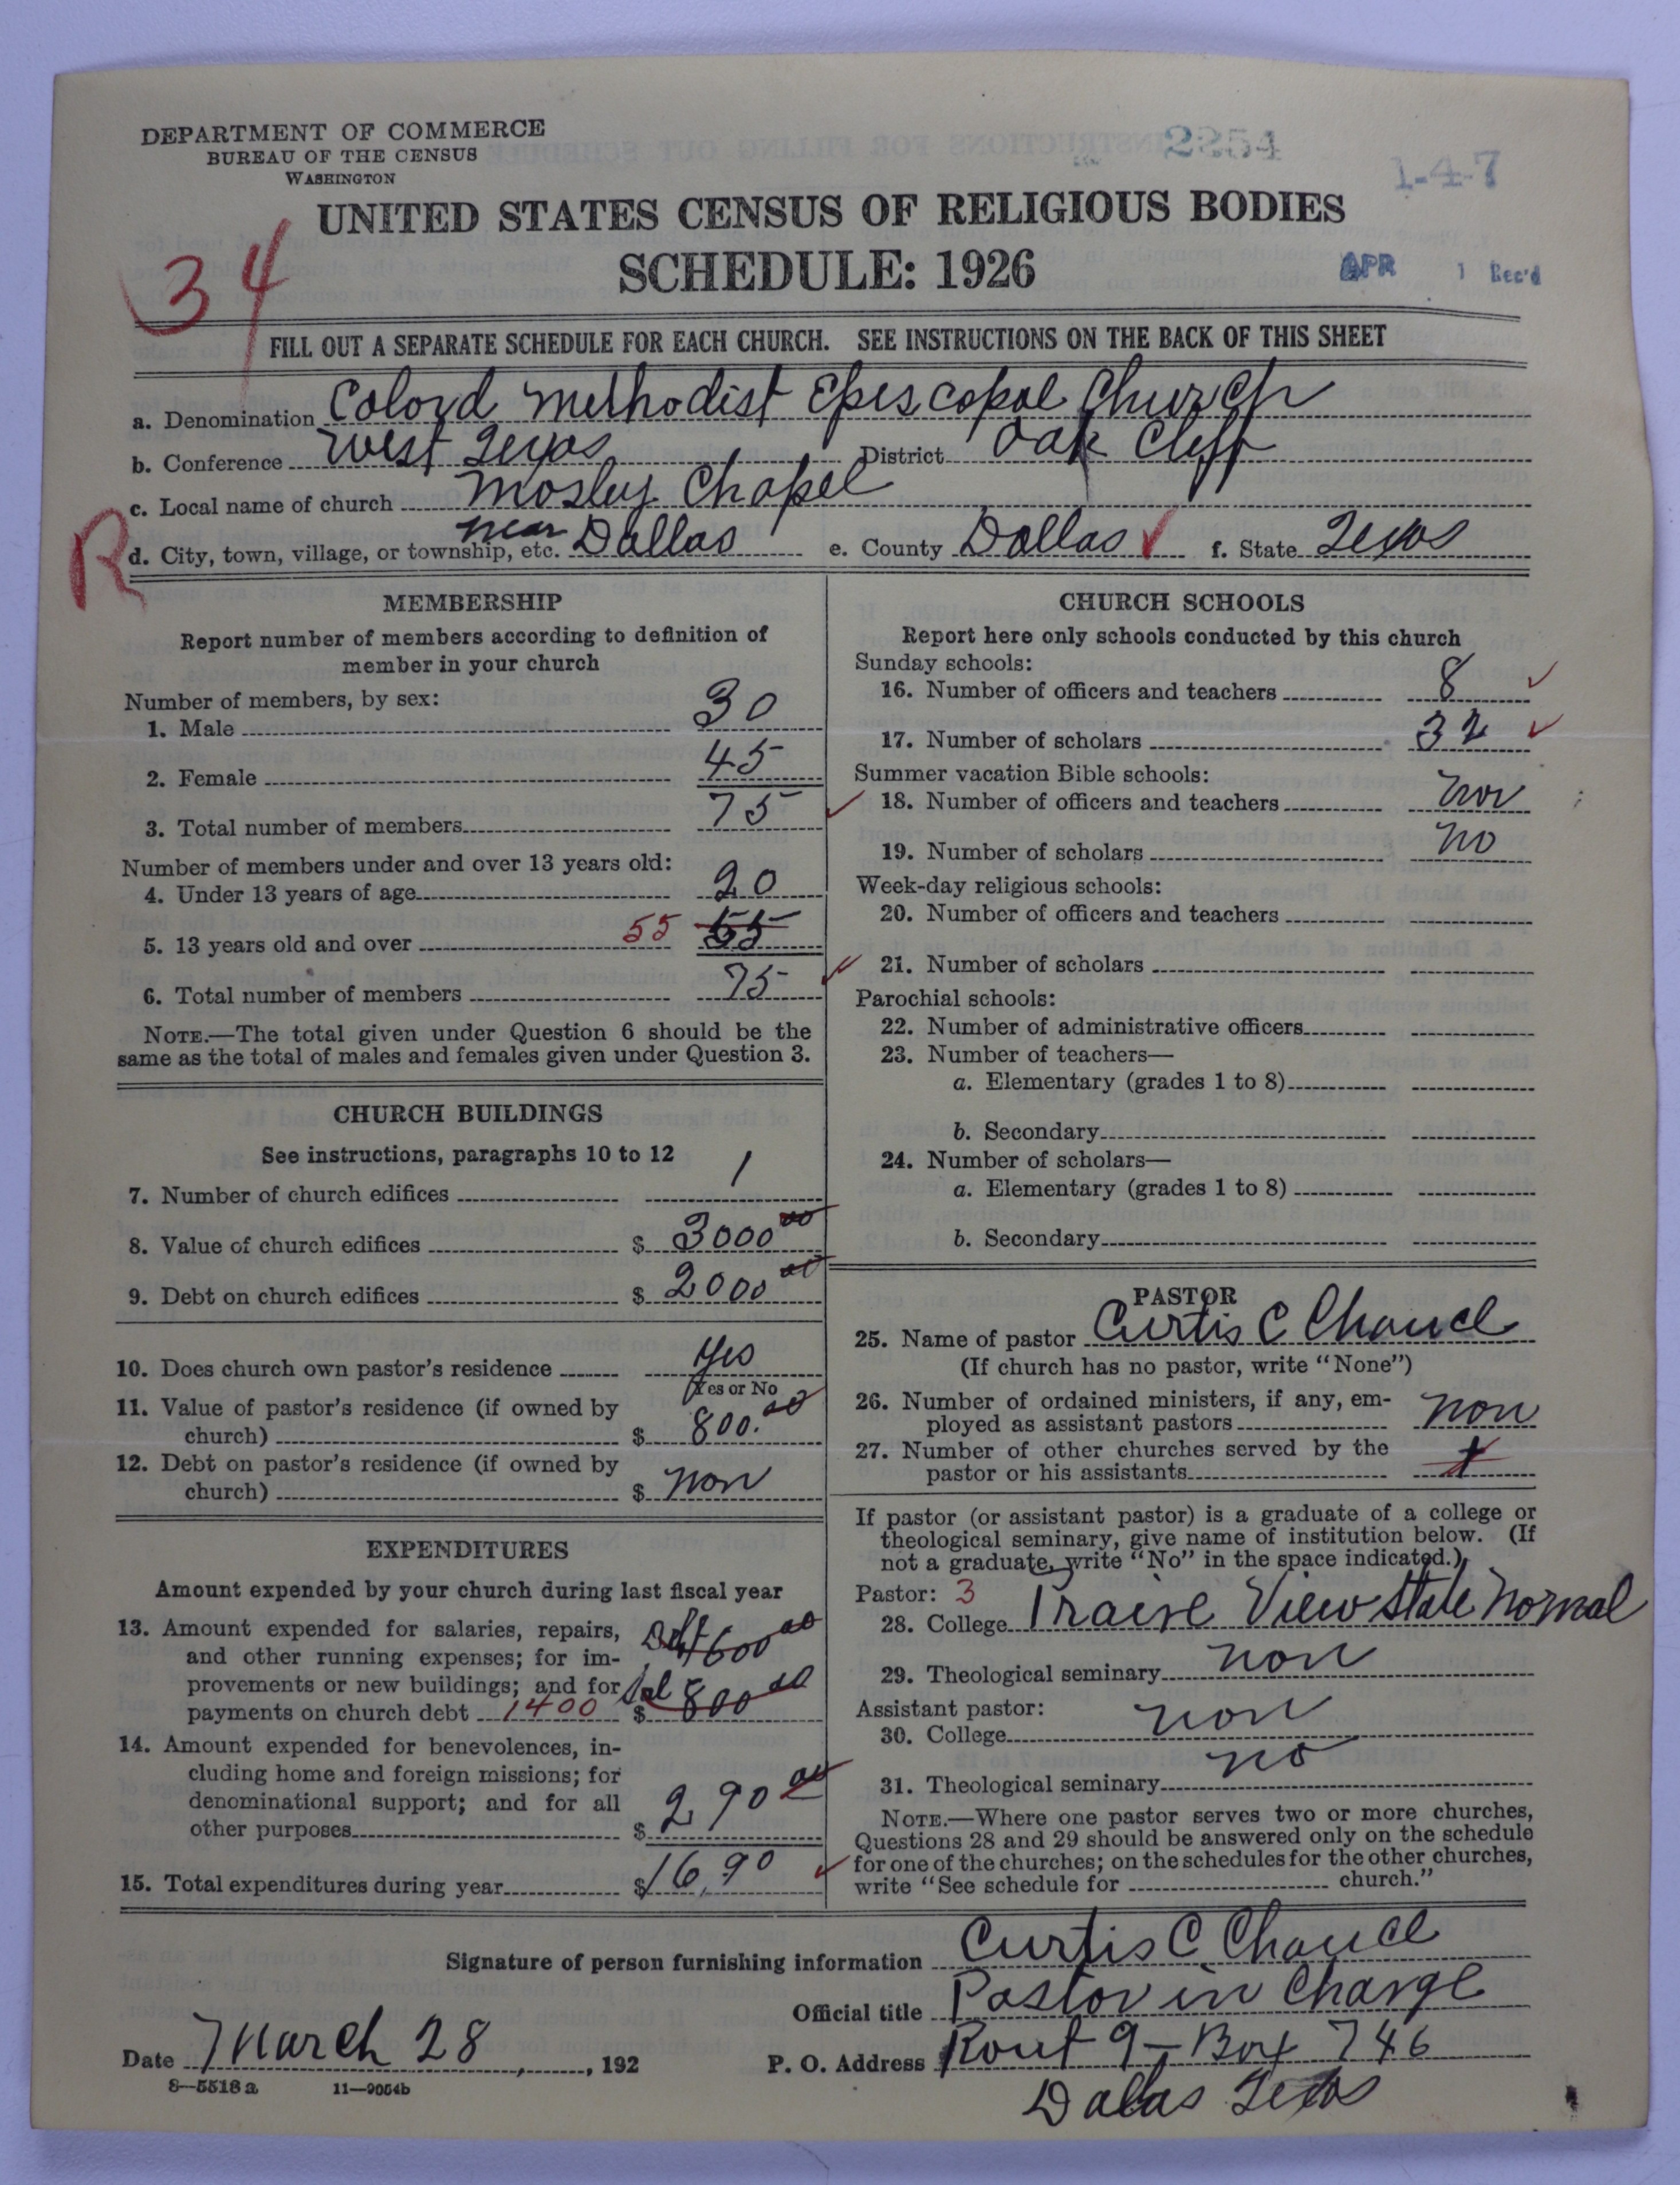 DEPARTMENT OF COMMERCE
BUREAU OF THE CENSUS
WASHINGTON
2254
1-4-7
UNITED STATES CENSUS OF RELIGIOUS BODIES
SCHEDULE: 1926
APR 1 Rec'd
34
FILL OUT A SEPARATE SCHEDULE FOR EACH CHURCH. SEE INSTRUCTIONS ON THE BACK OF THIS SHEET
a. Denomination Colord Methodist Episcopal Church
b. Conference West Texas District Oak Cliff
c. Local name of church Mosley Chapel
R
d. City, town, village, or township, etc. near Dallas e. County Dallas f. State Texas
MEMBERSHIP
Report number of members according to definition of
member in your church
Number of members, by sex:
1. Male 30
2. Female 45
3. Total number of members 75
Number of members under and over 13 years old:
4. Under 13 years of age 20
5. 13 years old and over 55 55
6. Total number of members 75
NOTE.—The total given under Question 6 should be the
same as the total of males and females given under Question 3.
CHURCH BUILDINGS
See instructions, paragraphs 10 to 12
7. Number of church edifices 1
8. Value of church edifices $ 3000 00
9. Debt on church edifices $ 2000 00
10. Does church own pastor's residence Yes
Yes or No
11. Value of pastor's residence (if owned by
church) $ 800.00
12. Debt on pastor's residence (if owned by
church) $ non
EXPENDITURES
Amount expended by your church during last fiscal year
13. Amount expended for salaries, repairs,
and other running expenses; for im- 600 00
provements or new buildings; and for
payments on church debt 1400 $ 800 00
14. Amount expended for benevolences, in-
cluding home and foreign missions; for
denominational support; and for all
other purposes $ 290 00
15. Total expenditures during year $ 16,90
CHURCH SCHOOLS
Report here only schools conducted by this church
Sunday schools:
16. Number of officers and teachers 8
17. Number of scholars 32
Summer vacation Bible schools:
18. Number of officers and teachers non
19. Number of scholars no
Week-day religious schools:
20. Number of officers and teachers
21. Number of scholars
Parochial schools:
22. Number of administrative officers
23. Number of teachers—
a. Elementary (grades 1 to 8)
b. Secondary
24. Number of scholars—
a. Elementary (grades 1 to 8)
b. Secondary
PASTOR
25. Name of pastor Curtis C
(If church has no pastor, write "None")
26. Number of ordained ministers, if any, em-
ployed as assistant pastors non
27. Number of other churches served by the
pastor or his assistants
If pastor (or assistant pastor) is a graduate of a college or
theological seminary, give name of institution below. (If
not a graduate, write "No" in the space indicated.)
Pastor: 3
28. College Praire View State Normal
29. Theological seminary non
Assistant pastor:
30. College non
31. Theological seminary no
NOTE.—Where one pastor serves two or more churches,
Questions 28 and 29 should be answered only on the schedule
for one of the churches; on the schedules for the other churches,
write "See schedule for church."
Signature of person furnishing information Curtis C
Official title Pastor in Charge
Date March 28, , 192 P. O. Address Rout 9 - Box 746
Dallas Texas
8—5518 a 11—9054b